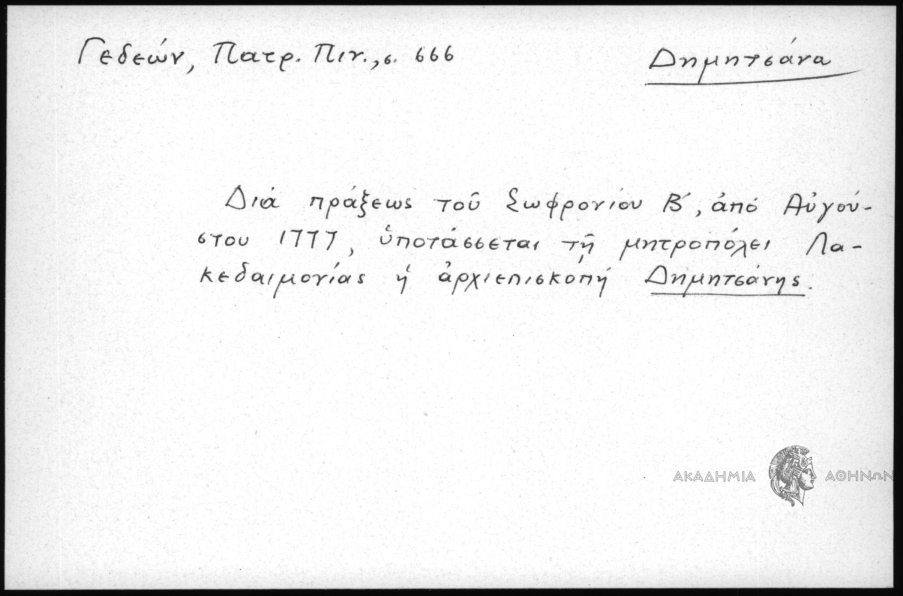 Γεδεών, Πατρ. Πιν., σ. 666
Δημητσάνα
Διά πράξεως τοῦ Σωφρονίου Β΄, ἀπό Αὐγού-
στου 1777, ὑποτάσσεται τῇ μητροπόλει Λα-
κεδαιμονίας ἡ ἀρχιεπισκοπή Δημητσάνης.
ΑΚΑΔΗΜΙΑ ΑΘΗΝΩΝ